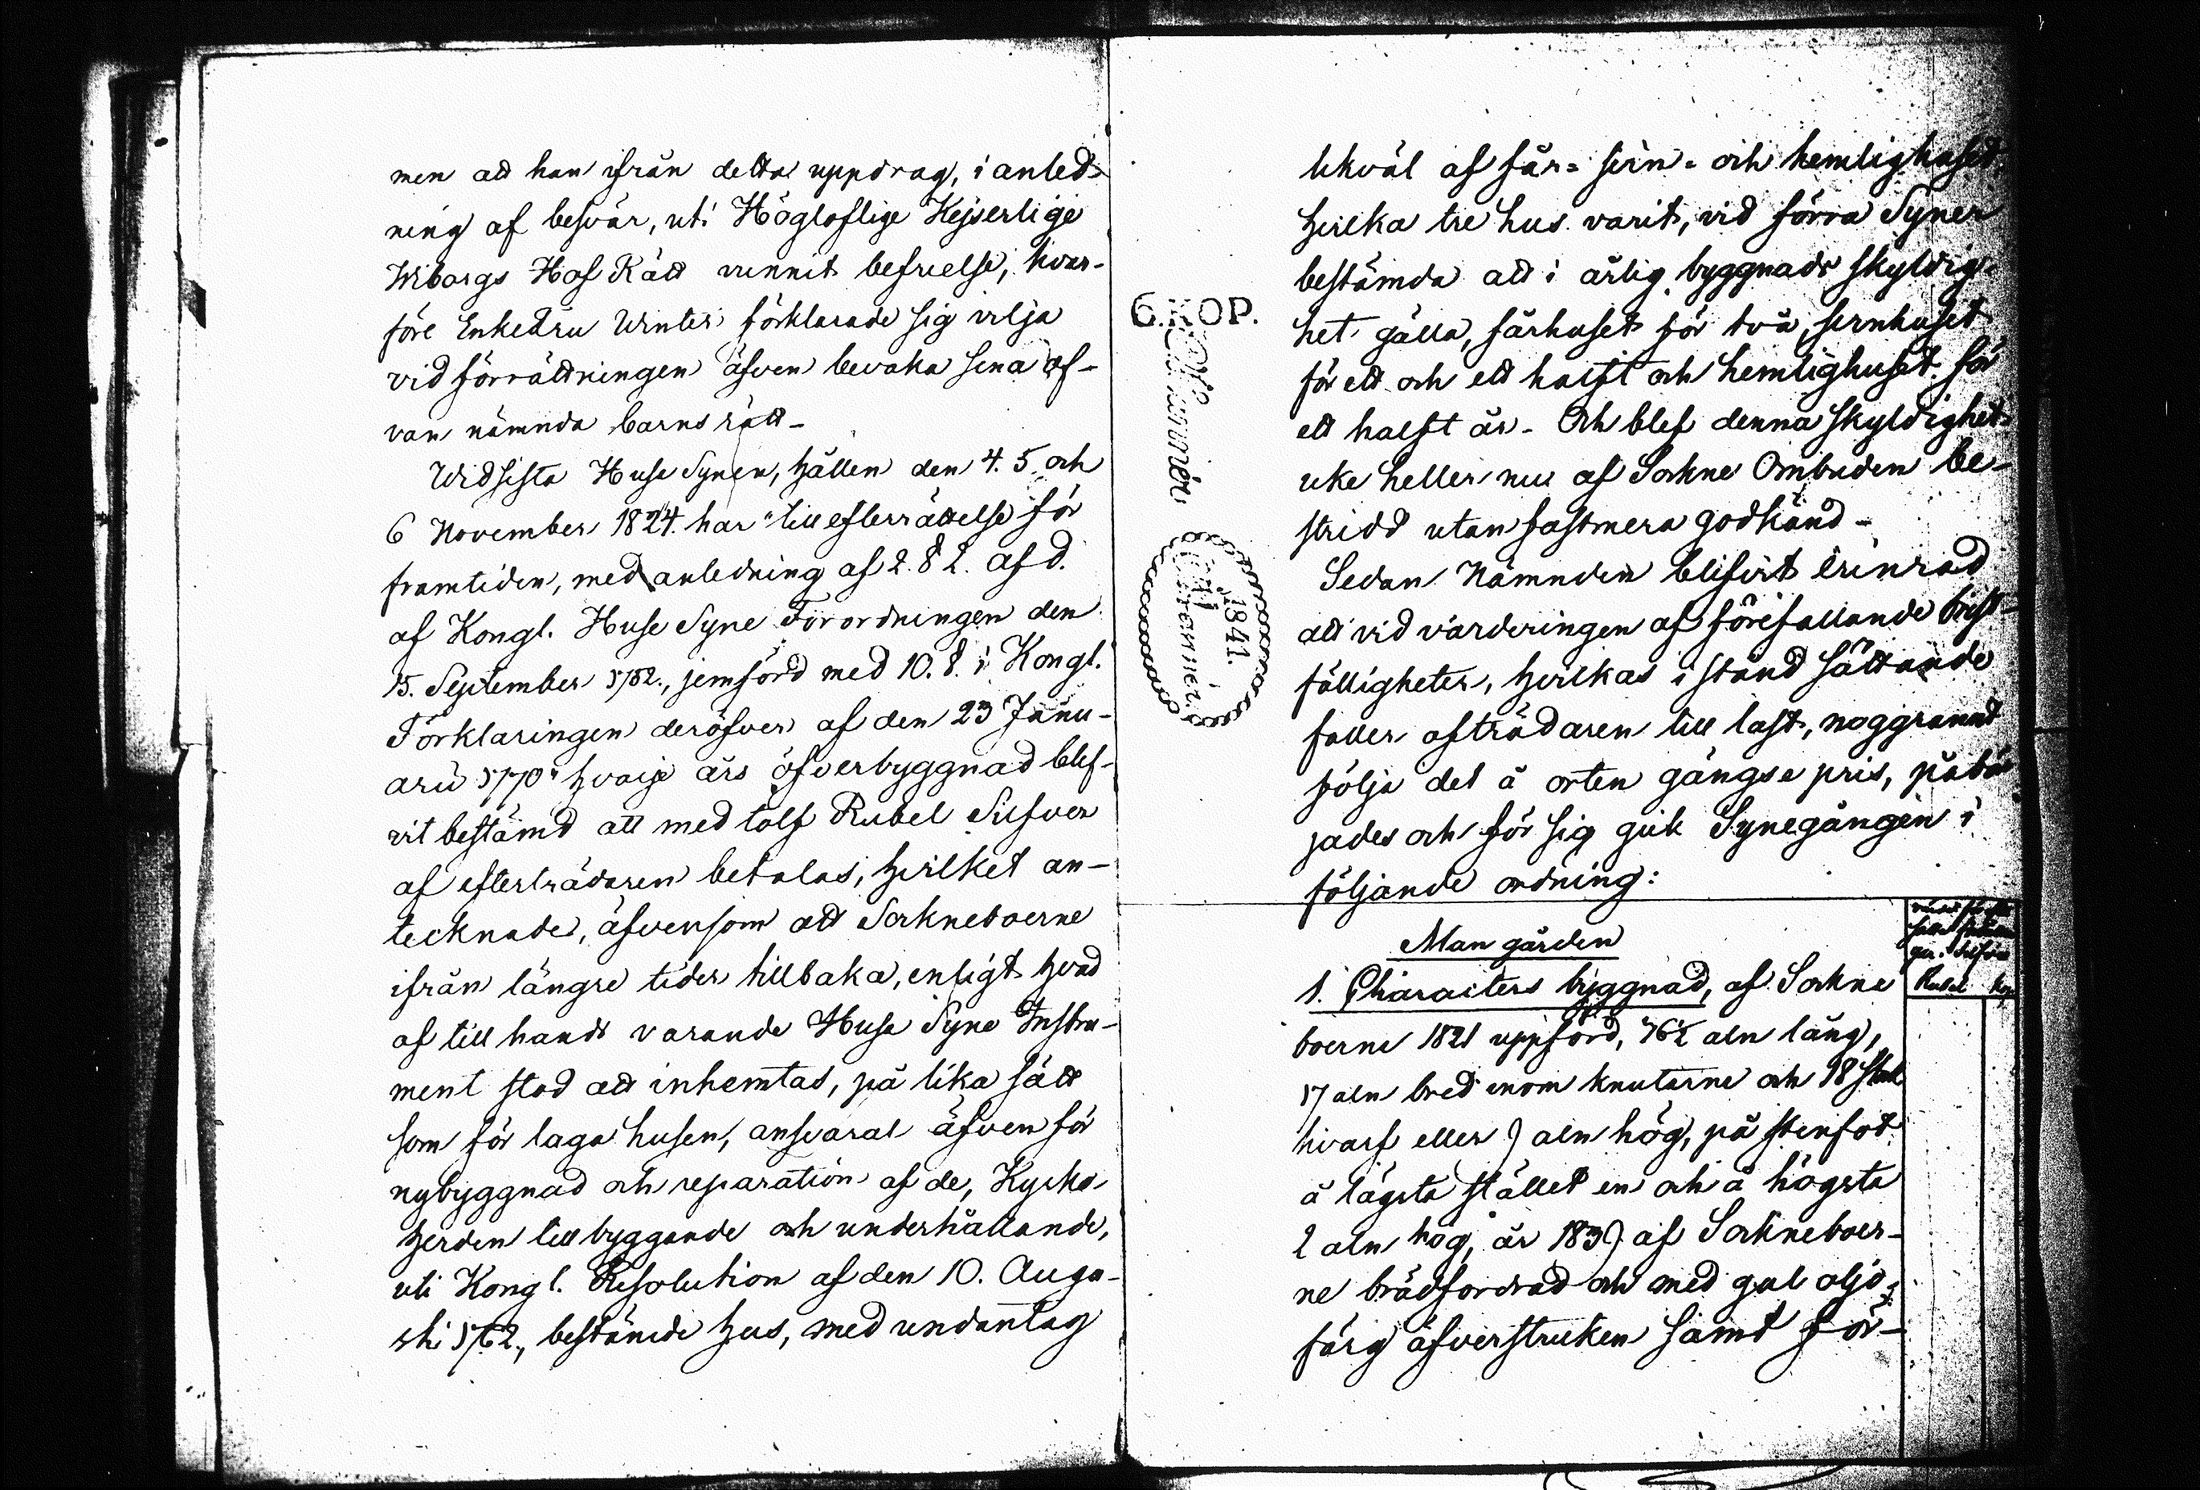 men att han ifrån detta uppdrag, i anled-
ning af besvär, uti Högloflige Kejserlige
Wiborgs Hof Rätt vunnit befrielse, hvar-
före Enkefru Winter förklarade sig vilja
vid förrättningen äfven bevaka sina of-
van nämnda barns rätt -
Vid sista Huse Synen, hållen den 4. 5. och
6 November 1824. har "till efterrättelse för
framtiden, med anledning af 2 § 2. afd.
af Kongl. Huse Syne Förordningen den
15. September 1752., jemförd med 10. §. i Kongl.
Förklaringen deröfver af den 23 Janu-
arii 1770" hvarje års öfverbyggnad blif-
vit bestämd att med tolf Rubel Silfver
af efterträdaren betalas, hvilket an-
tecknades, äfvensom att Sockneboerne
ifrån längre tider tillbaka, enligt hvad
af till hands varande Huse Syne Instru-
ment stod att inhemtas, på lika sätt
som för laga husen, ansvarat äfven för
nybyggnad och reparation af de, Kyrko-
herden till byggande och underhållande,
uti Kongl. Resolution af den 10. Augu-
sti 1762., bestämde hus, med undantag
likväl af får- svin- och hemlighuset,
hvilka tre hus varit, vid förra Syner
bestämda att i årlig byggnads skyldig-
het gälla, fårhuset för två, svinhuset
för ett och ett halft och hemlighuset för
ett halft år - Och blef denna skyldighet
icke heller nu af Sockne Ombuden be-
stridd utan fastmera godkänd -
Sedan Nämnden blifvit erinrad
att vid värderingen af förefallande brist-
fälligheter, hvilkas i stånd sättande
faller afträdaren till last, noggrannt
följa det å orten gångse pris, påbör-
jades och för sig gick Synegången i
följande ordning:
Man gården
1. Characters byggnad, af Sockne
boerne 1821 uppförd, 46½ aln lång,
17 aln bred inom knutarne och 18 stock
hvarf eller 7 aln hög, på stenfot
å lägsta stället en och å högsta
2 aln hög, år 1837 af Sockneboer-
ne brädfordrad och med gul oljo-
färg öfverstruken samt för-
Rubel Kop
6. KOP.
1841.